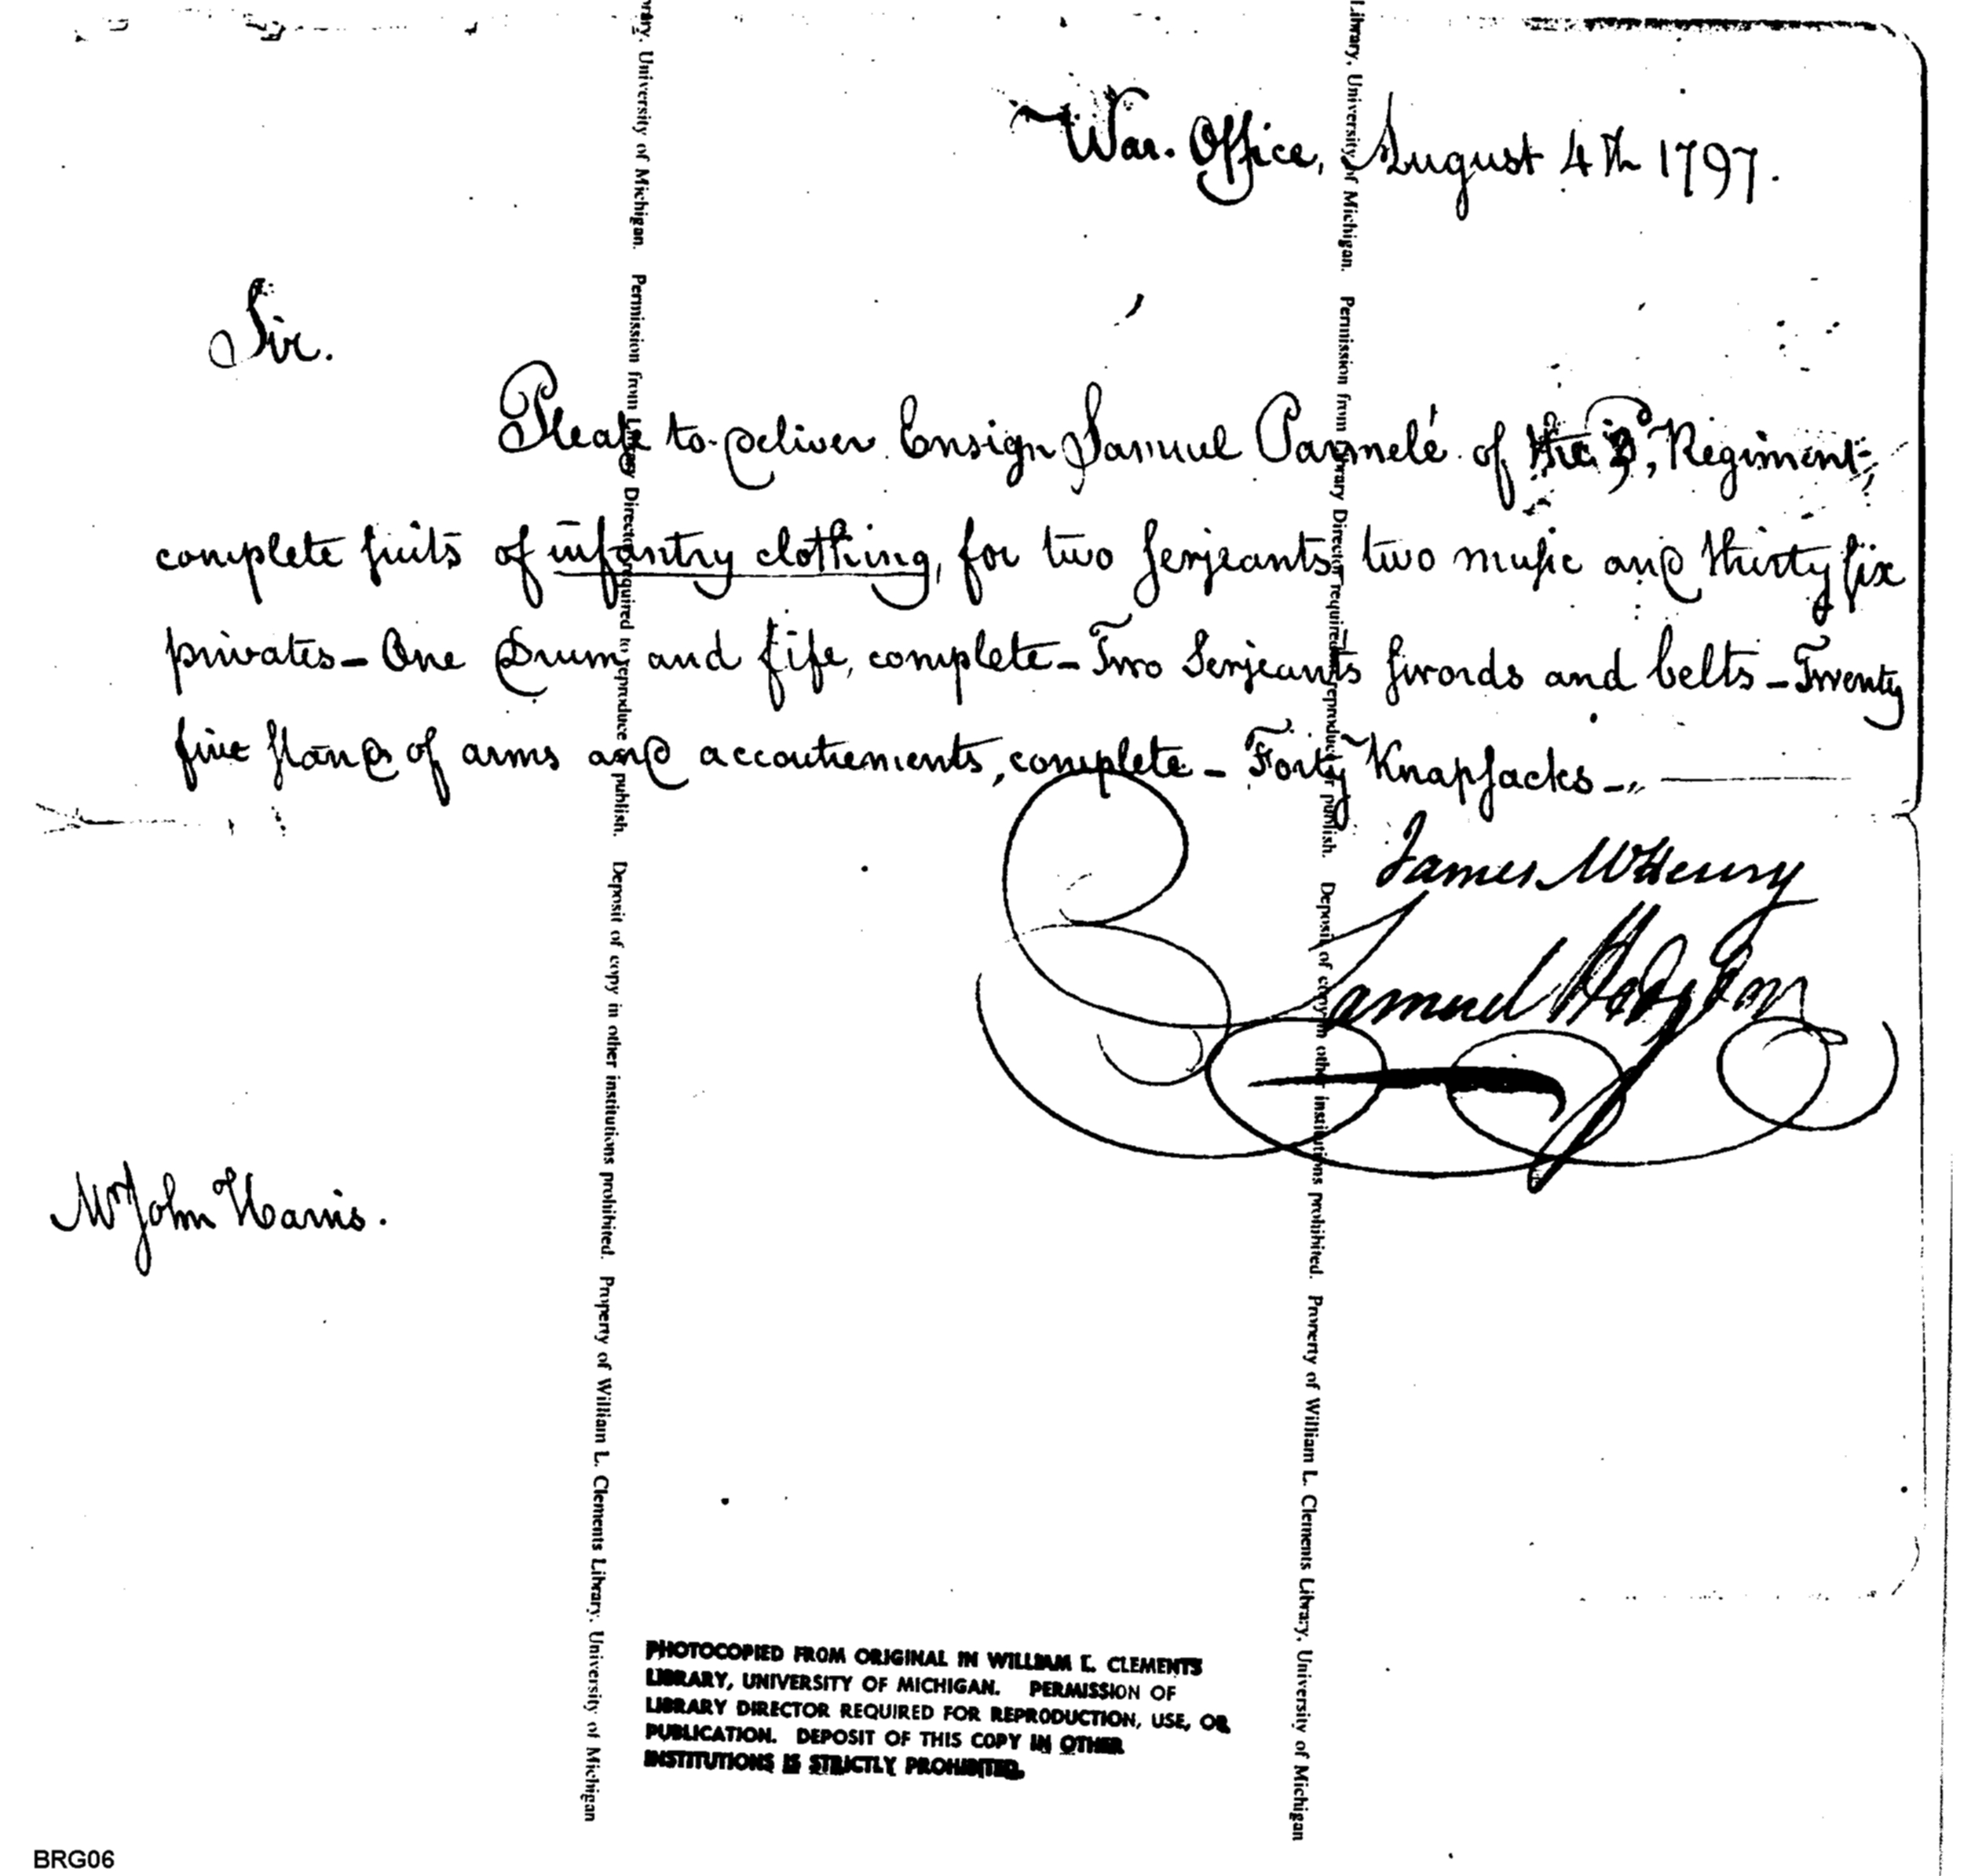 War Office, August 4th 1797.
Sir.
Please to deliver Ensign Samuel Parmelé of the 3d, Regiment,
complete suits of infantry clothing, for two serjeants, two music and thirty six
privates – One Drum and fife, complete – Two Serjeants swords and belts – Twenty
five stands of arms and accoutrements, complete – Forty Knapsacks –
James McHenry
Samuel Hodgdon
Mr John Harris.
rary, University of Michigan. Permission from Library Director required to reproduce or publish. Deposit of copy in other institutions prohibited. Property of William L. Clements Library, University of Michigan
Library, University of Michigan. Permission from Library Director required to reproduce or publish. Deposit of copy in other institutions prohibited. Property of William L. Clements Library, University of Michigan
PHOTOCOPIED FROM ORIGINAL IN WILLIAM L. CLEMENTS
LIBRARY, UNIVERSITY OF MICHIGAN. PERMISSION OF
LIBRARY DIRECTOR REQUIRED FOR REPRODUCTION, USE, OR
PUBLICATION. DEPOSIT OF THIS COPY IN OTHER
INSTITUTIONS IS STRICTLY PROHIBITED.
BRG06